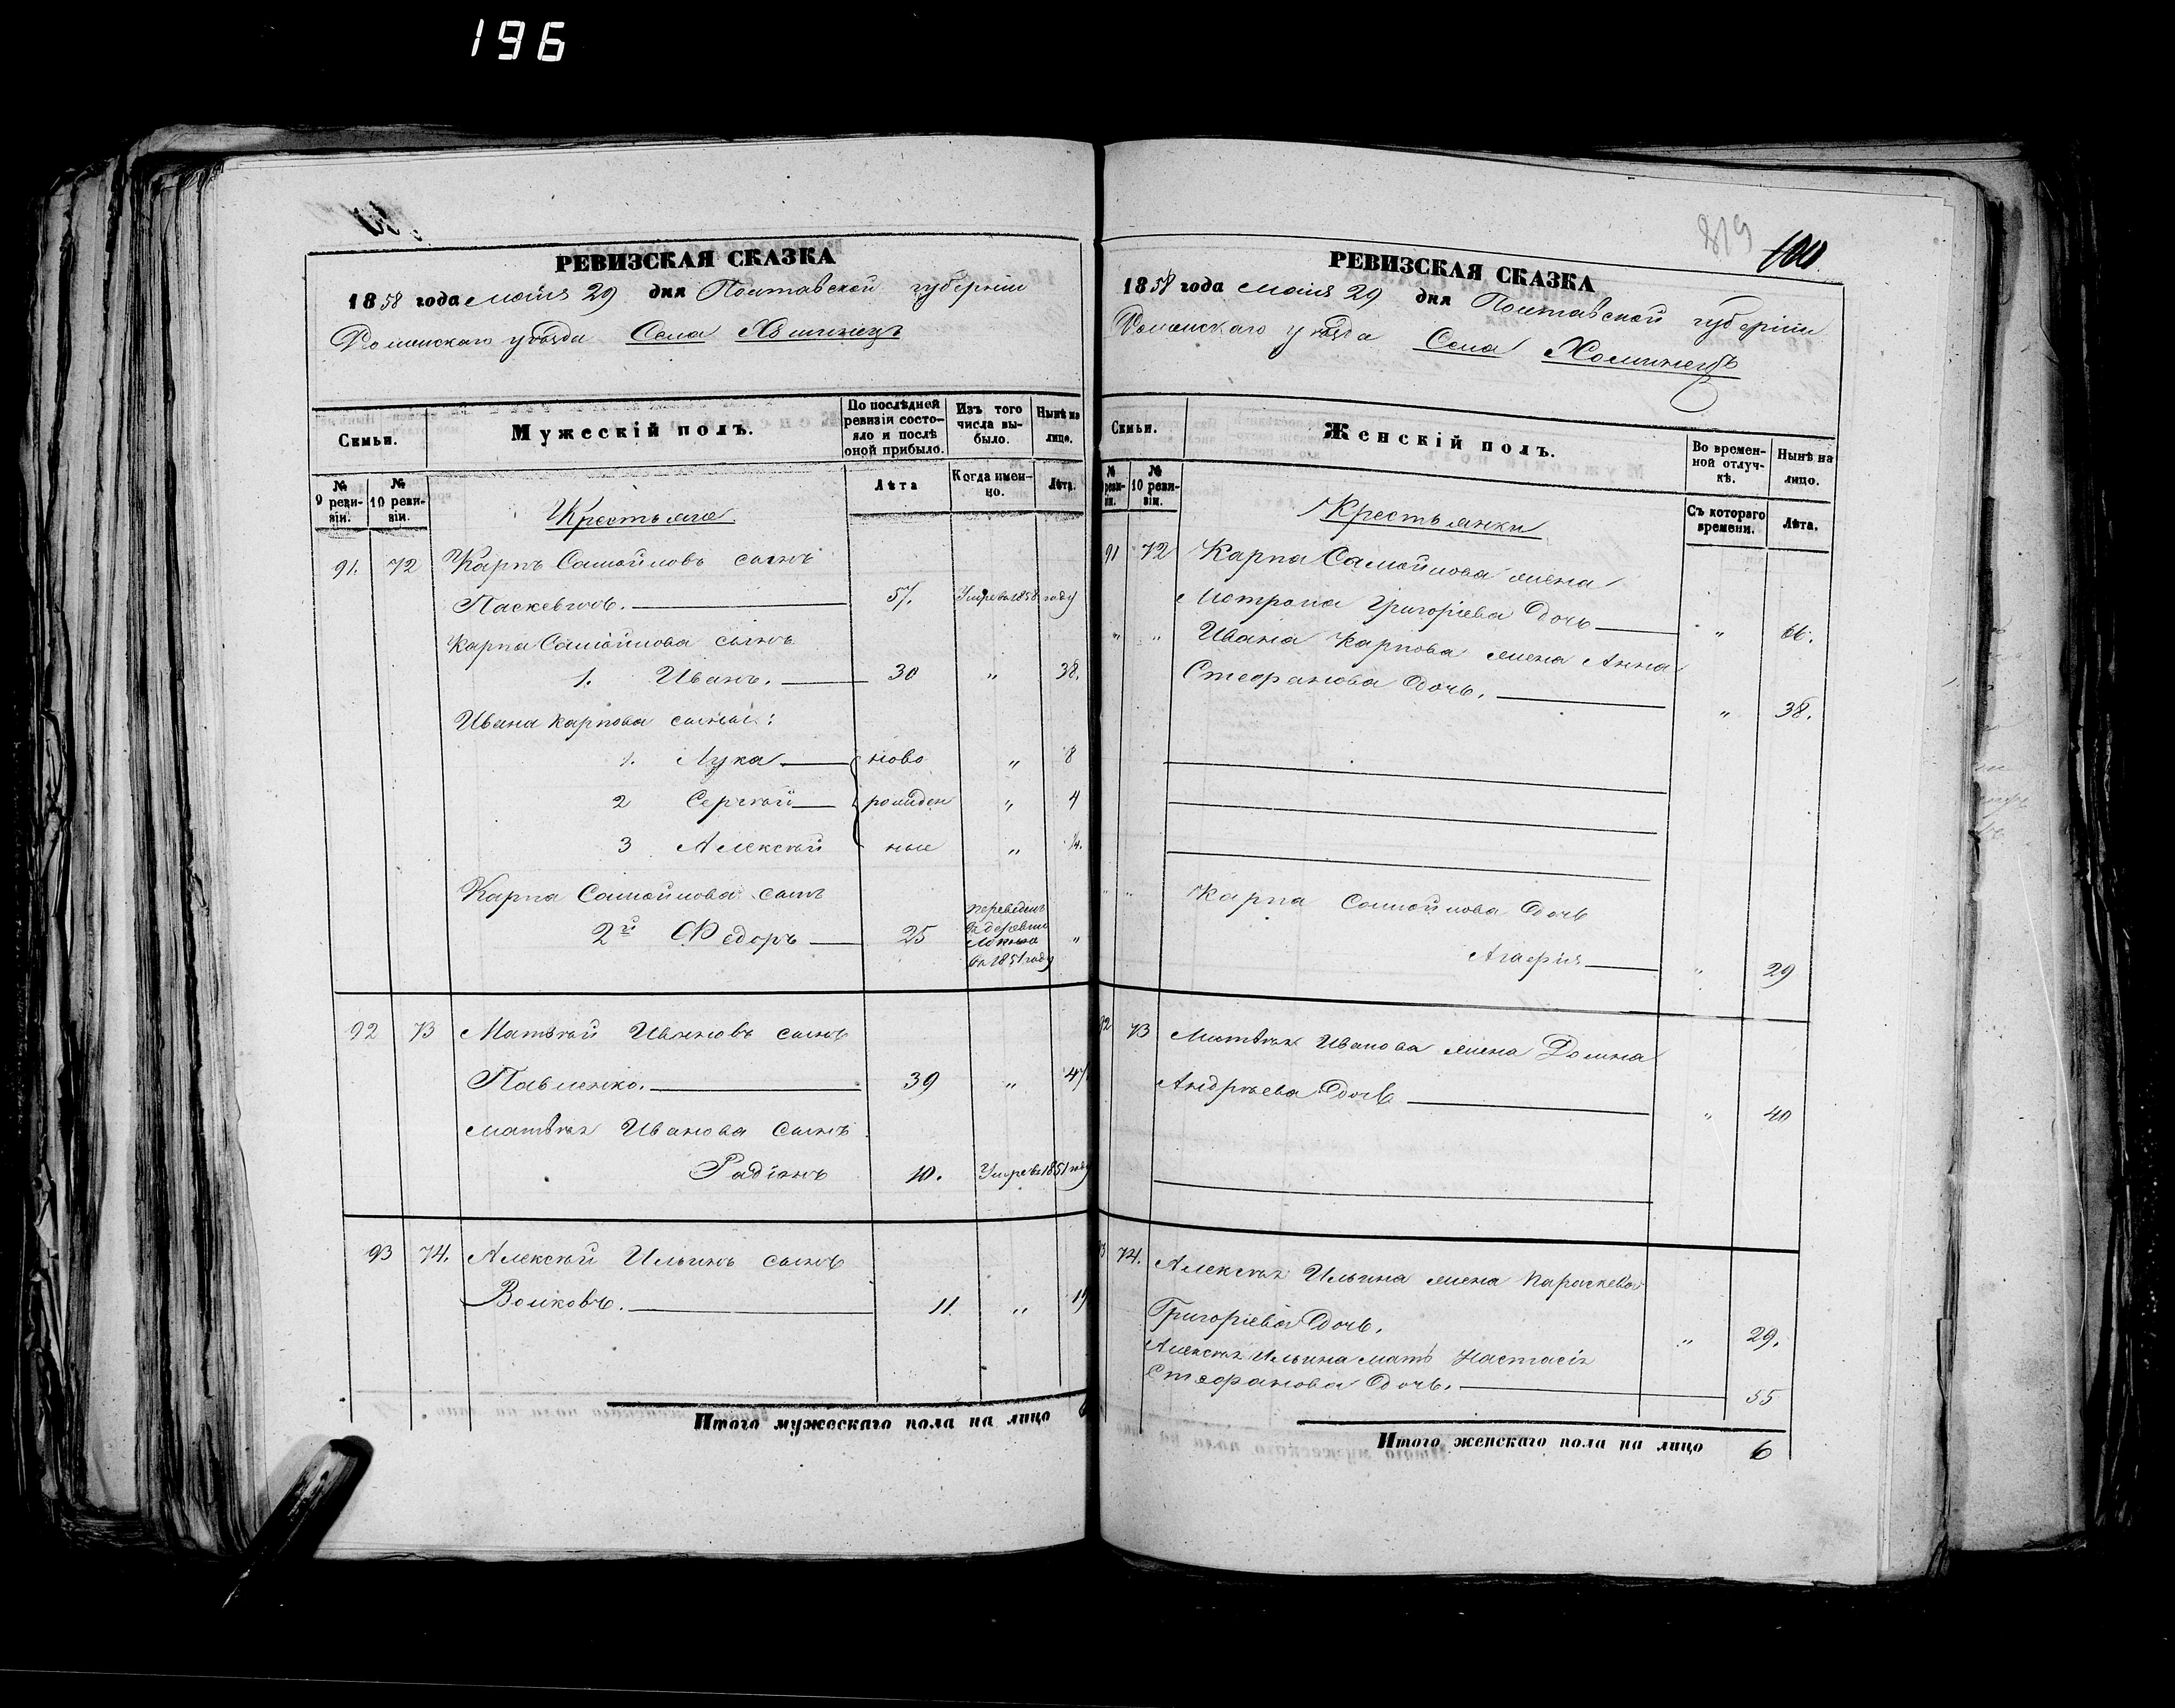 196
РЕВИЗСКАЯ СКАЗКА
1858 года Маія 29 дня Полтавской губерніи
Роменскаго уѣзда Села Хоминецъ
Семьи.
Мужескій полъ.
По послѣдней ревизіи состояло и послѣ оной прибыло.
Изъ того числа выбыло.
Нынѣ на лицо.
№ 9 ревизіи.
№ 10 ревизіи.
Лѣта
Когда именно.
Лѣта.
Крестьяне
91. 72 Карпъ Самойловъ сынъ
Паскевичъ. 57. Умре въ 1858 году
Карпа Самойлова сынъ
1. Иванъ. 30 " 38.
Ивана Карпова сыны:
1. Лука ново " 8
2 Сергѣй рожден " 4
3 Алексѣй ные " ¼.
Карпа Самойлова сынъ
2й Федоръ 25 переведенъ
въ 1851 году "
92 73 Матвѣй Ивановъ сынъ
Павленко. 39 " 47
Матвѣя Иванова сынъ
Радіонъ 10. Умре въ 1851 году
93 74. Алексѣй Ильинъ сынъ
Волковъ. 11. " 19
Итого мужескаго пола на лицо 6
819
100
РЕВИЗСКАЯ СКАЗКА
1858 года Маія 29 дня Полтавской губерніи
Роменскаго уѣзда Села Хоминецъ
Семьи.
Женскій полъ.
Во временной отлучкѣ.
Нынѣ на лицо.
№ 9 ревизіи.
№ 10 ревизіи.
Съ котораго времени.
Лѣта.
Крестьянки
91 72 Карпа Самойлова жена
Мотрона Григоріева дочь " 66.
" " Ивана Карпова жена Анна
Стефанова дочь. " 38.
" " Карпа Самойлова дочь
Агафія " 29
92 73 Матвѣя Иванова жена Домна
Андрѣева дочь " 40
93 74. Алексѣя Ильина жена Параскева
Григоріева дочь. " 29.
Алексѣя Ильина мать Настасія
Стефанова дочь. 55
Итого женскаго пола на лицо 6